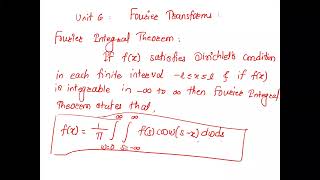 Unit 6 : Fourier Transforms :
Fourier Integral Theorem :
If f(x) satisfies Dirichlet's condition
in each finite interval -l ≤ x ≤ l & if f(x)
is integrable in -∞ to ∞ then Fourier Integral
Theorem states that
f(x) = 1/π ∫_{ω=0}^{∞} ∫_{s=-∞}^{∞} f(s) cos ω(s-x) dω ds